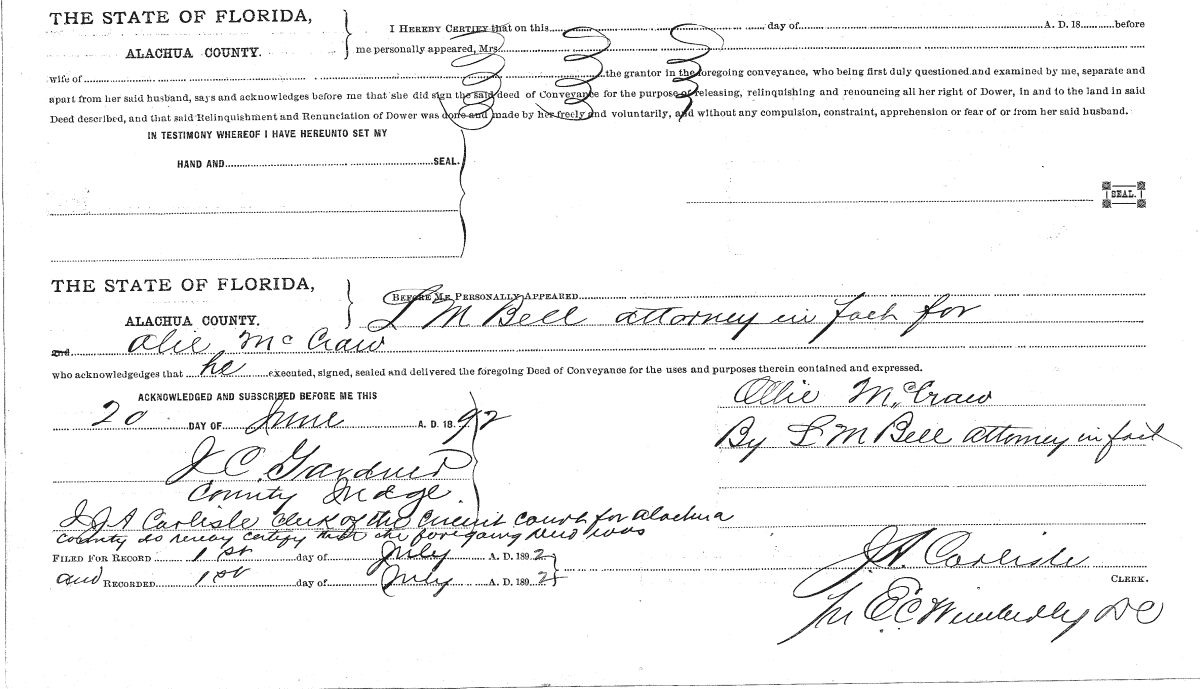 THE STATE OF FLORIDA,
ALACHUA COUNTY.
I HEREBY CERTIFY that on this day of A. D. 18 before
me personally appeared, Mrs.
wife of the grantor in the foregoing conveyance, who being first duly questioned and examined by me, separate and
apart from her said husband, says and acknowledges before me that she did sign the said deed of Conveyance for the purpose of releasing, relinquishing and renouncing all her right of Dower, in and to the land in said
Deed described, and that said Relinquishment and Renunciation of Dower was done and made by her freely and voluntarily, and without any compulsion, constraint, apprehension or fear of or from her said husband.
IN TESTIMONY WHEREOF I HAVE HEREUNTO SET MY
HAND AND SEAL.
SEAL.
THE STATE OF FLORIDA,
ALACHUA COUNTY.
BEFORE ME PERSONALLY APPEARED
L M Bell attorney in fact for
and Olie McCraw
who acknowledgedges that he executed, signed, sealed and delivered the foregoing Deed of Conveyance for the uses and purposes therein contained and expressed.
ACKNOWLEDGED AND SUBSCRIBED BEFORE ME THIS
20 DAY OF June A. D. 18 92
J C. Gardner
County Judge.
Ollie McCraw
By L M Bell attorney in fact
I J A Carlisle clerk of the Circuit court for Alachua
County do hereby certify that the foregoing deed was
FILED FOR RECORD 1st day of July A. D. 1892
and RECORDED 1st day of July A. D. 1892
J. A. Carlisle
CLERK.
E. C. Wimberly DC